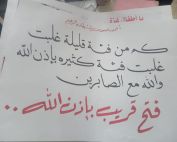 كم من فئة قليلة غلبت
غلبت فئة كثيره بإذن الله
والله مع الصابرين
فتح قريب بإذن الله ..